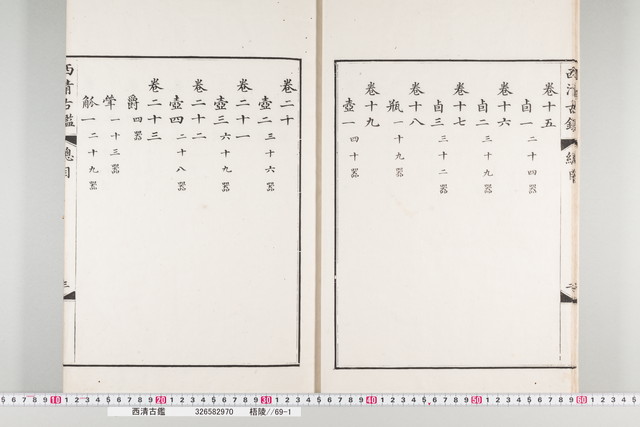 西清古鑑 總目 二
卷十五
卣一 二十四器
卷十六
卣二 三十九器
卷十七
卣三 三十二器
卷十八
瓶一 十九器
卷十九
壺一 四十器
卷二十
壺二 三十六器
卷二十一
壺三 六十九器
卷二十二
壺四 二十八器
卷二十三
爵 四器
斝 一十三器
觚一 二十九器
西清古鑑 總目 三
西清古鑑 326582970 梧陵//69-1